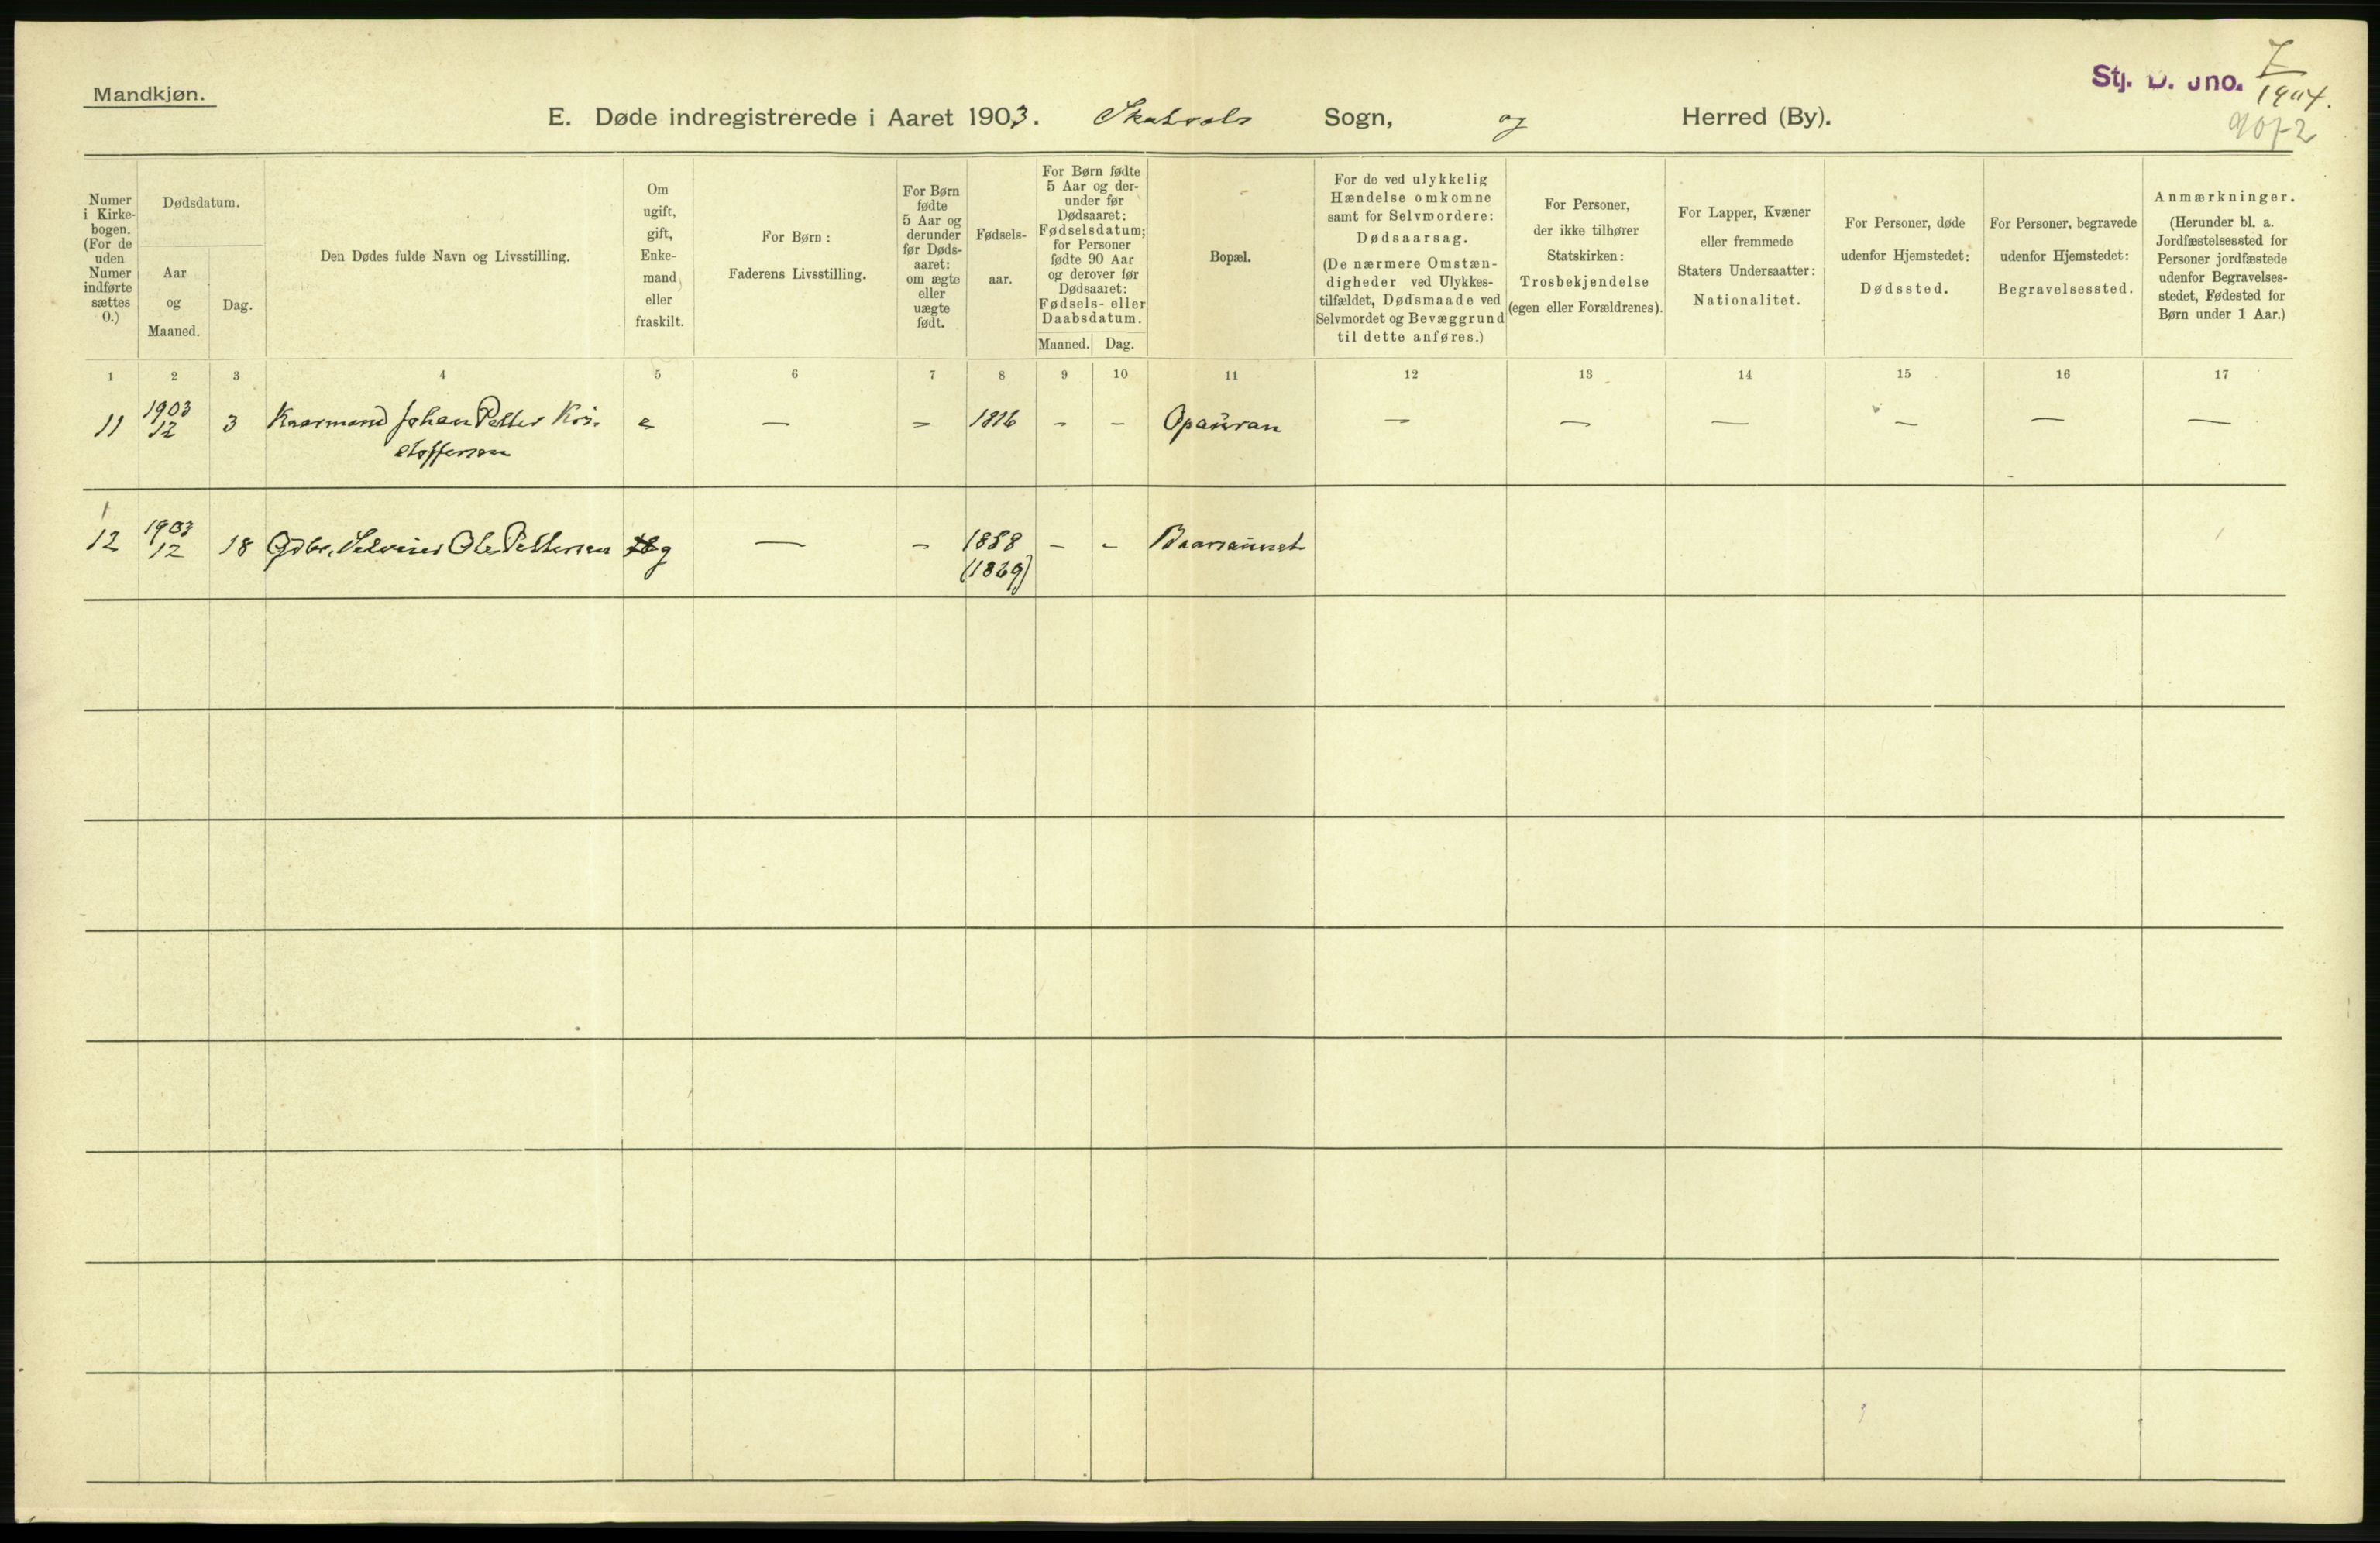 Mandkjøn.
Stj. D. Jno. 7
1904.
E. Døde indregistrerede i Aaret 1903. Skatvals Sogn, og Herred (By).
907-2
Numer
i Kirke-
bogen.
(For de
uden
Numer
indførte
sættes
0.)
Dødsdatum.
Aar
og
Maaned.
Dag.
Den Dødes fulde Navn og Livsstilling.
Om
ugift,
gift,
Enke-
mand
eller
fraskilt.
For Børn:
Faderens Livsstilling.
For Børn
fødte
5 Aar og
derunder
før Døds-
aaret:
om ægte
eller
uægte
født.
Fødsels-
aar.
For Børn fødte
5 Aar og der-
under før
Dødsaaret:
Fødselsdatum;
for Personer
fødte 90 Aar
og derover før
Dødsaaret:
Fødsels- eller
Daabsdatum.
Maaned. Dag.
Bopæl.
For de ved ulykkelig
Hændelse omkomne
samt for Selvmordere:
Dødsaarsag.
(De nærmere Omstæn-
digheder ved Ulykkes-
tilfældet, Dødsmaade ved
Selvmordet og Bevæggrund
til dette anføres.)
For Personer,
der ikke tilhører
Statskirken:
Trosbekjendelse
(egen eller Forældrenes).
For Lapper, Kvæner
eller fremmede
Staters Undersaatter:
Nationalitet.
For Personer, døde
udenfor Hjemstedet:
Dødssted.
For Personer, begravede
udenfor Hjemstedet:
Begravelsessted.
Anmærkninger.
(Herunder bl. a.
Jordfæstelsessted for
Personer jordfæstede
udenfor Begravelses-
stedet, Fødested for
Børn under 1 Aar.)
1 2 3 4 5 6 7 8 9 10 11 12 13 14 15 16 17
11 1903/12 3 Kaarmand Johan Petter Kri- e — — 1816 - - Opaüran — — — — — —
stoffersen
12 1903/12 18 Gdbr. Ole Pettersen g — - 1858 - -
(1829)